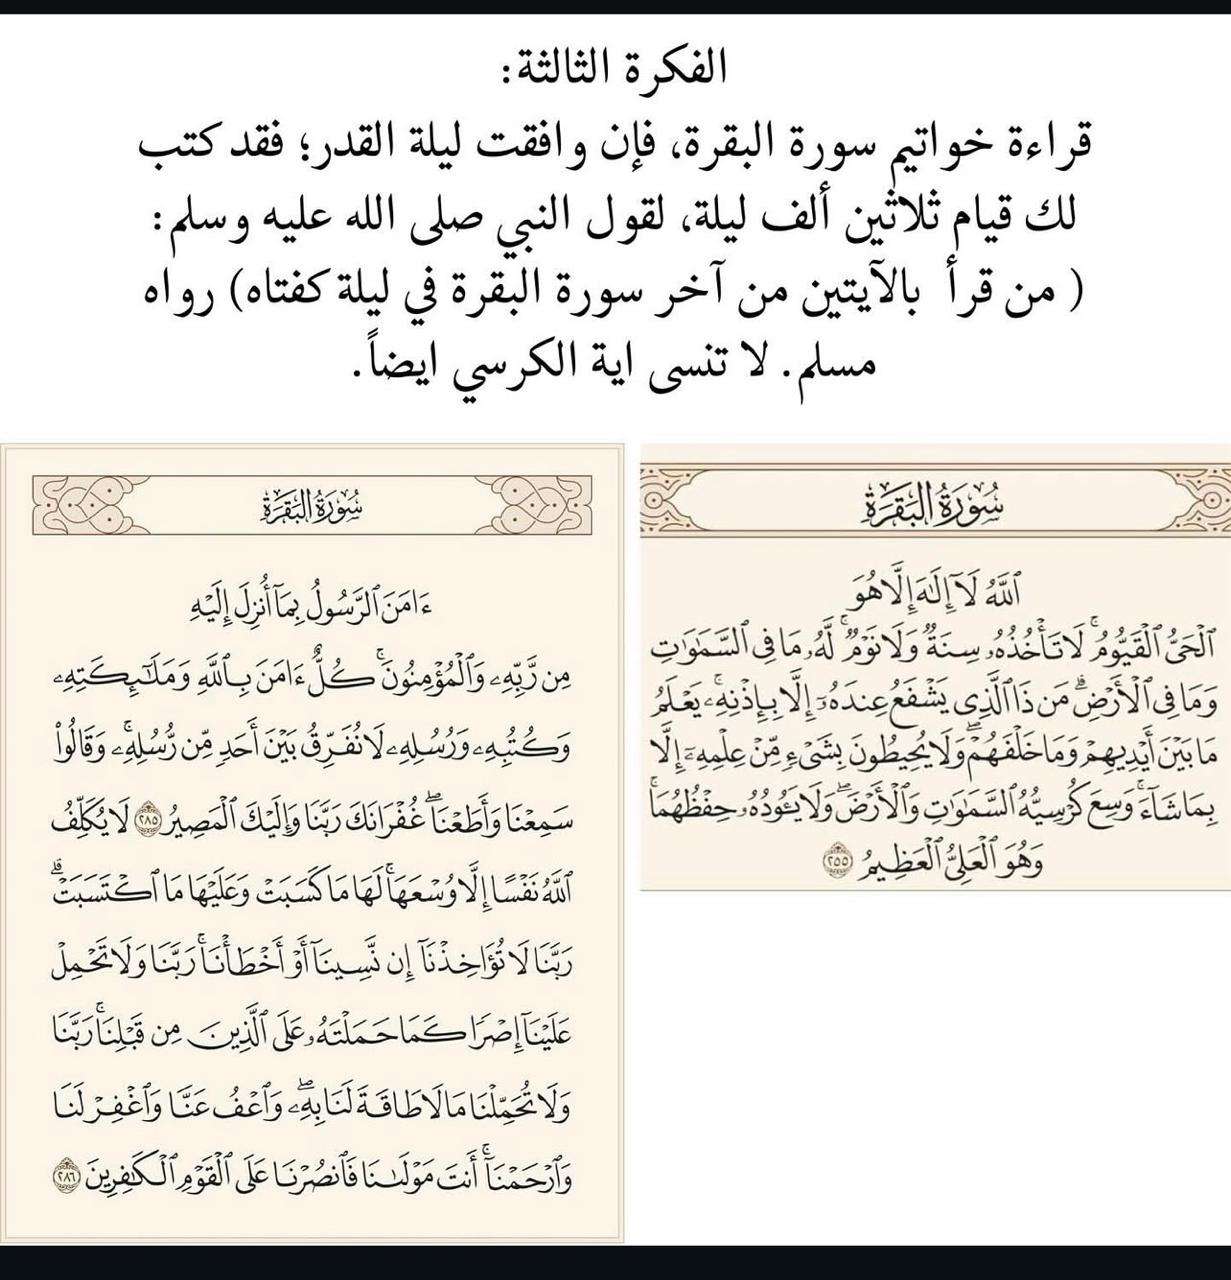 الفكرة الثالثة:
قراءة خواتيم سورة البقرة، فإن وافقت ليلة القدر؛ فقد كتب
لك قيام ثلاثين ألف ليلة، لقول النبي صلى الله عليه وسلم:
( من قرأ بالآيتين من آخر سورة البقرة في ليلة كفتاه) رواه
مسلم. لا تنسى اية الكرسي ايضاً.
سُورَةُ البَقَرَةِ
ٱللَّهُ لَآ إِلَٰهَ إِلَّا هُوَ
ٱلْحَىُّ ٱلْقَيُّومُ ۚ لَا تَأْخُذُهُۥ سِنَةٌ وَلَا نَوْمٌ ۚ لَّهُۥ مَا فِى ٱلسَّمَٰوَٰتِ
وَمَا فِى ٱلْأَرْضِ ۗ مَن ذَا ٱلَّذِى يَشْفَعُ عِندَهُۥٓ إِلَّا بِإِذْنِهِۦ ۚ يَعْلَمُ
مَا بَيْنَ أَيْدِيهِمْ وَمَا خَلْفَهُمْ ۖ وَلَا يُحِيطُونَ بِشَىْءٍ مِّنْ عِلْمِهِۦٓ إِلَّا
بِمَا شَآءَ ۚ وَسِعَ كُرْسِيُّهُ ٱلسَّمَٰوَٰتِ وَٱلْأَرْضَ ۖ وَلَا يَـُٔودُهُۥ حِفْظُهُمَا ۚ
وَهُوَ ٱلْعَلِىُّ ٱلْعَظِيمُ ٢٥٥
سُورَةُ البَقَرَةِ
ءَامَنَ ٱلرَّسُولُ بِمَآ أُنزِلَ إِلَيْهِ
مِن رَّبِّهِۦ وَٱلْمُؤْمِنُونَ ۚ كُلٌّ ءَامَنَ بِٱللَّهِ وَمَلَٰٓئِكَتِهِۦ
وَكُتُبِهِۦ وَرُسُلِهِۦ لَا نُفَرِّقُ بَيْنَ أَحَدٍ مِّن رُّسُلِهِۦ ۚ وَقَالُوا۟
سَمِعْنَا وَأَطَعْنَا ۖ غُفْرَانَكَ رَبَّنَا وَإِلَيْكَ ٱلْمَصِيرُ ٢٨٥ لَا يُكَلِّفُ
ٱللَّهُ نَفْسًا إِلَّا وُسْعَهَا ۚ لَهَا مَا كَسَبَتْ وَعَلَيْهَا مَا ٱكْتَسَبَتْ ۗ
رَبَّنَا لَا تُؤَاخِذْنَآ إِن نَّسِينَآ أَوْ أَخْطَأْنَا ۚ رَبَّنَا وَلَا تَحْمِلْ
عَلَيْنَآ إِصْرًا كَمَا حَمَلْتَهُۥ عَلَى ٱلَّذِينَ مِن قَبْلِنَا ۚ رَبَّنَا
وَلَا تُحَمِّلْنَا مَا لَا طَاقَةَ لَنَا بِهِۦ ۖ وَٱعْفُ عَنَّا وَٱغْفِرْ لَنَا
وَٱرْحَمْنَآ ۚ أَنتَ مَوْلَىٰنَا فَٱنصُرْنَا عَلَى ٱلْقَوْمِ ٱلْكَٰفِرِينَ ٢٨٦